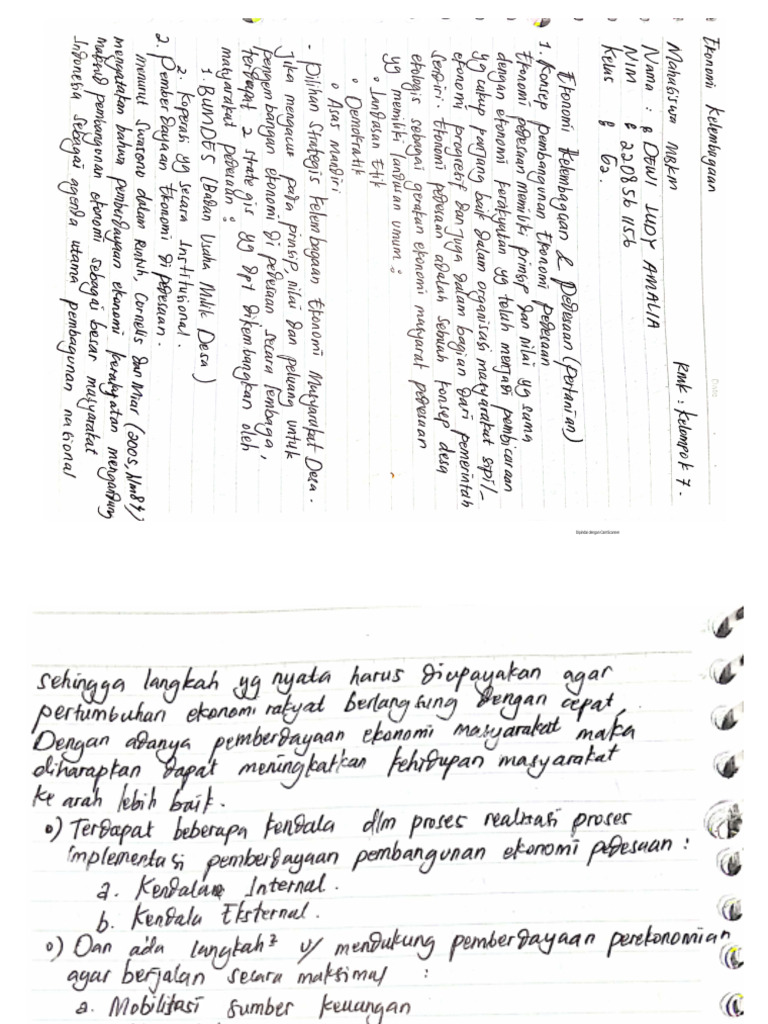 Ekonomi Kelembagaan
Mahasiswa MBKM
RMK : Kelompok 7.
Nama : DEWI LUDY AMALIA
NIM : 2208561156
Kelas : G2.
Ekonomi Kelembagaan & Pedesaan (Pertanian)
1. Konsep pembangunan Ekonomi pedesaan
Ekonomi pedesaan memiliki prinsip dan nilai yg sama
dengan ekonomi kerakyatan yg telah menjadi pembicaraan
yg cukup panjang baik dalam organisasi masyarakat sipil/
ekonomi progresif dan juga dalam bagian dari pemerintah
sendiri. Ekonomi pedesaan adalah sebuah konsep desa
ekologis sebagai gerakan ekonomi masyarat pedesaan
yg memiliki landasan umum :
• Landasan Etik
• Demokratik
• Asas Mandiri
- Pilihan Strategis Kelembagaan Ekonomi Masyarakat Desa.
Jika mengacu pada prinsip, nilai dan peluang untuk
pengembangan ekonomi di pedesaan secara lembaga,
terdapat 2 strategis yg dpt dikembangkan oleh
masyarakat pedesaan :
1. BUMDES (Badan Usaha Milik Desa)
2. Koperasi yg secara Institusional.
2. Pemberdayaan Ekonomi di pedesaan.
menurut Swasono dalam Rintuh, Cornelis dan Miar (2005, hlm 84),
mengatakan bahwa pemberdayaan ekonomi kerakyatan mengandung
maksud pembangunan ekonomi sebagai besar masyarakat
Indonesia sebagai agenda utama pembagunan national
Dipindai dengan CamScanner
sehingga langkah yg nyata harus diupayakan agar
pertumbuhan ekonomi rakyat berlangsung dengan cepat.
Dengan adanya pemberdayaan ekonomi masyarakat maka
diharapkan dapat meningkatkan kehidupan masyarakat
ke arah lebih baik.
o) Terdapat beberapa kendala dlm proses realisasi proses
implementasi pemberdayaan pembangunan ekonomi pedesaan :
a. Kendala Internal.
b. Kendala Eksternal.
o) Dan ada langkah² u/ mendukung pemberdayaan perekonomian
agar berjalan secara maksimal :
a. Mobilitasi sumber keuangan